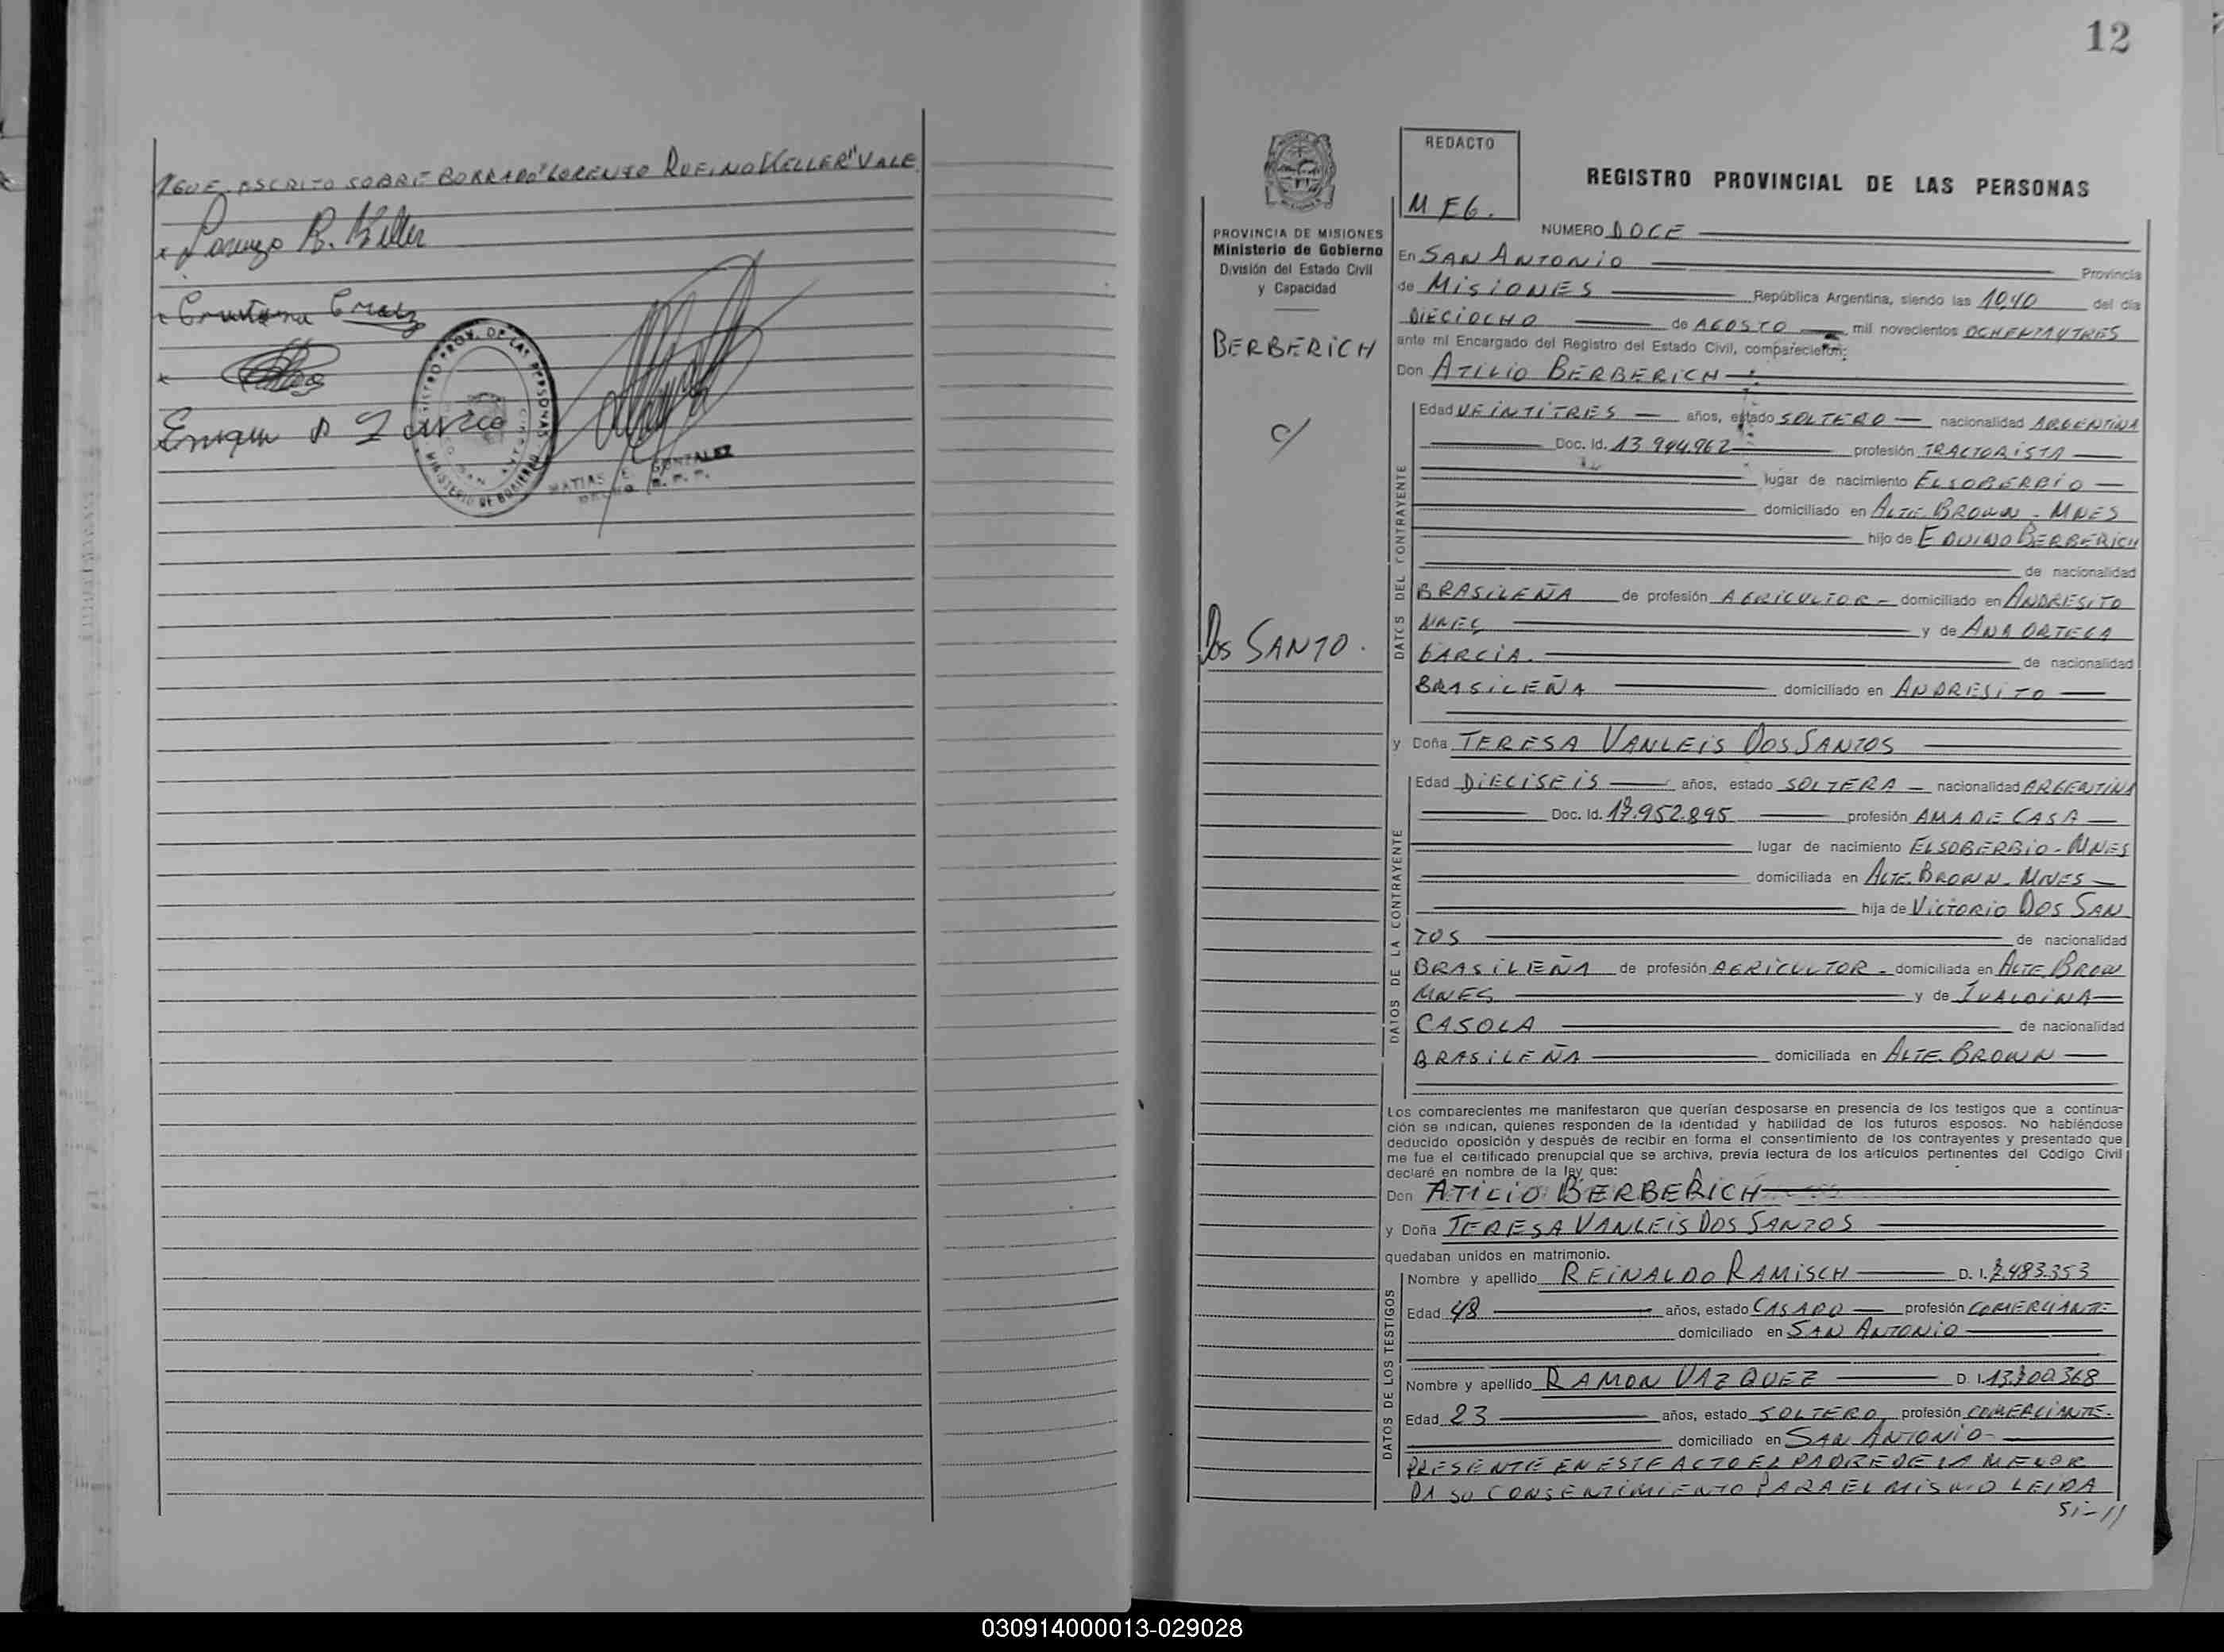 ESCRITO SOBRE BORRADO "LORENZO RUFINO KELLER" VALE
Lorenzo R. Keller
MATIAS E. GONZALEZ
12
REDACTO
M E G.
REGISTRO PROVINCIAL DE LAS PERSONAS
PROVINCIA DE MISIONES
Ministerio de Gobierno
División del Estado Civil
y Capacidad
BERBERICH
c/
DOS SANTO.
NUMERO DOCE
En SAN ANTONIO Provincia
de MISIONES República Argentina, siendo las 10,40 del día
DIECIOCHO de AGOSTO mil novecientos OCHENTA Y TRES
ante mí Encargado del Registro del Estado Civil, comparecieron:
Don ATILIO BERBERICH
DATOS DEL CONTRAYENTE
Edad VEINTITRES años, estado SOLTERO nacionalidad ARGENTINA
Doc. Id. 13.944.962 profesión TRACTORISTA
lugar de nacimiento EL SOBERBIO
domiciliado en ALTE. BROWN - MNES
hijo de EDUINO BERBERICH
de nacionalidad
BRASILEÑA de profesión AGRICULTOR - domiciliado en ANDRESITO
MNES y de ANA ORTEGA
GARCIA. de nacionalidad
BRASILEÑA domiciliado en ANDRESITO
y Doña TERESA VANLEIS DOS SANTOS
DATOS DE LA CONTRAYENTE
Edad DIECISEIS años, estado SOLTERA nacionalidad ARGENTINA
Doc. Id. 17.952.895 profesión AMA DE CASA
lugar de nacimiento EL SOBERBIO - MNES
domiciliada en ALTE. BROWN - MNES
hija de VICTORIO DOS SAN
TOS de nacionalidad
BRASILEÑA de profesión AGRICULTOR - domiciliada en ALTE. BROW
MNES y de IVALDINA
CASOLA de nacionalidad
BRASILEÑA domiciliada en ALTE. BROWN
Los comparecientes me manifestaron que querían desposarse en presencia de los testigos que a continua-
ción se indican, quienes responden de la identidad y habilidad de los futuros esposos. No habiéndose
deducido oposición y después de recibir en forma el consentimiento de los contrayentes y presentado que
me fue el certificado prenupcial que se archiva, previa lectura de los artículos pertinentes del Código Civil
declaré en nombre de la ley que:
Don ATILIO BERBERICH
y Doña TERESA VANLEIS DOS SANTOS
quedaban unidos en matrimonio.
DATOS DE LOS TESTIGOS
Nombre y apellido REINALDO RAMISCH D. I. 7.483.353
Edad 48 años, estado CASADO profesión COMERCIANTE
domiciliado en SAN ANTONIO
Nombre y apellido RAMON VAZQUEZ D. I. 13.700.368
Edad 23 años, estado SOLTERO profesión COMERCIANTE.
domiciliado en SAN ANTONIO
PRESENTE EN ESTE ACTO EL PADRE DE LA MENOR
DA SU CONSENTIMIENTO PARA EL MISMO LEIDA
030914000013-029028